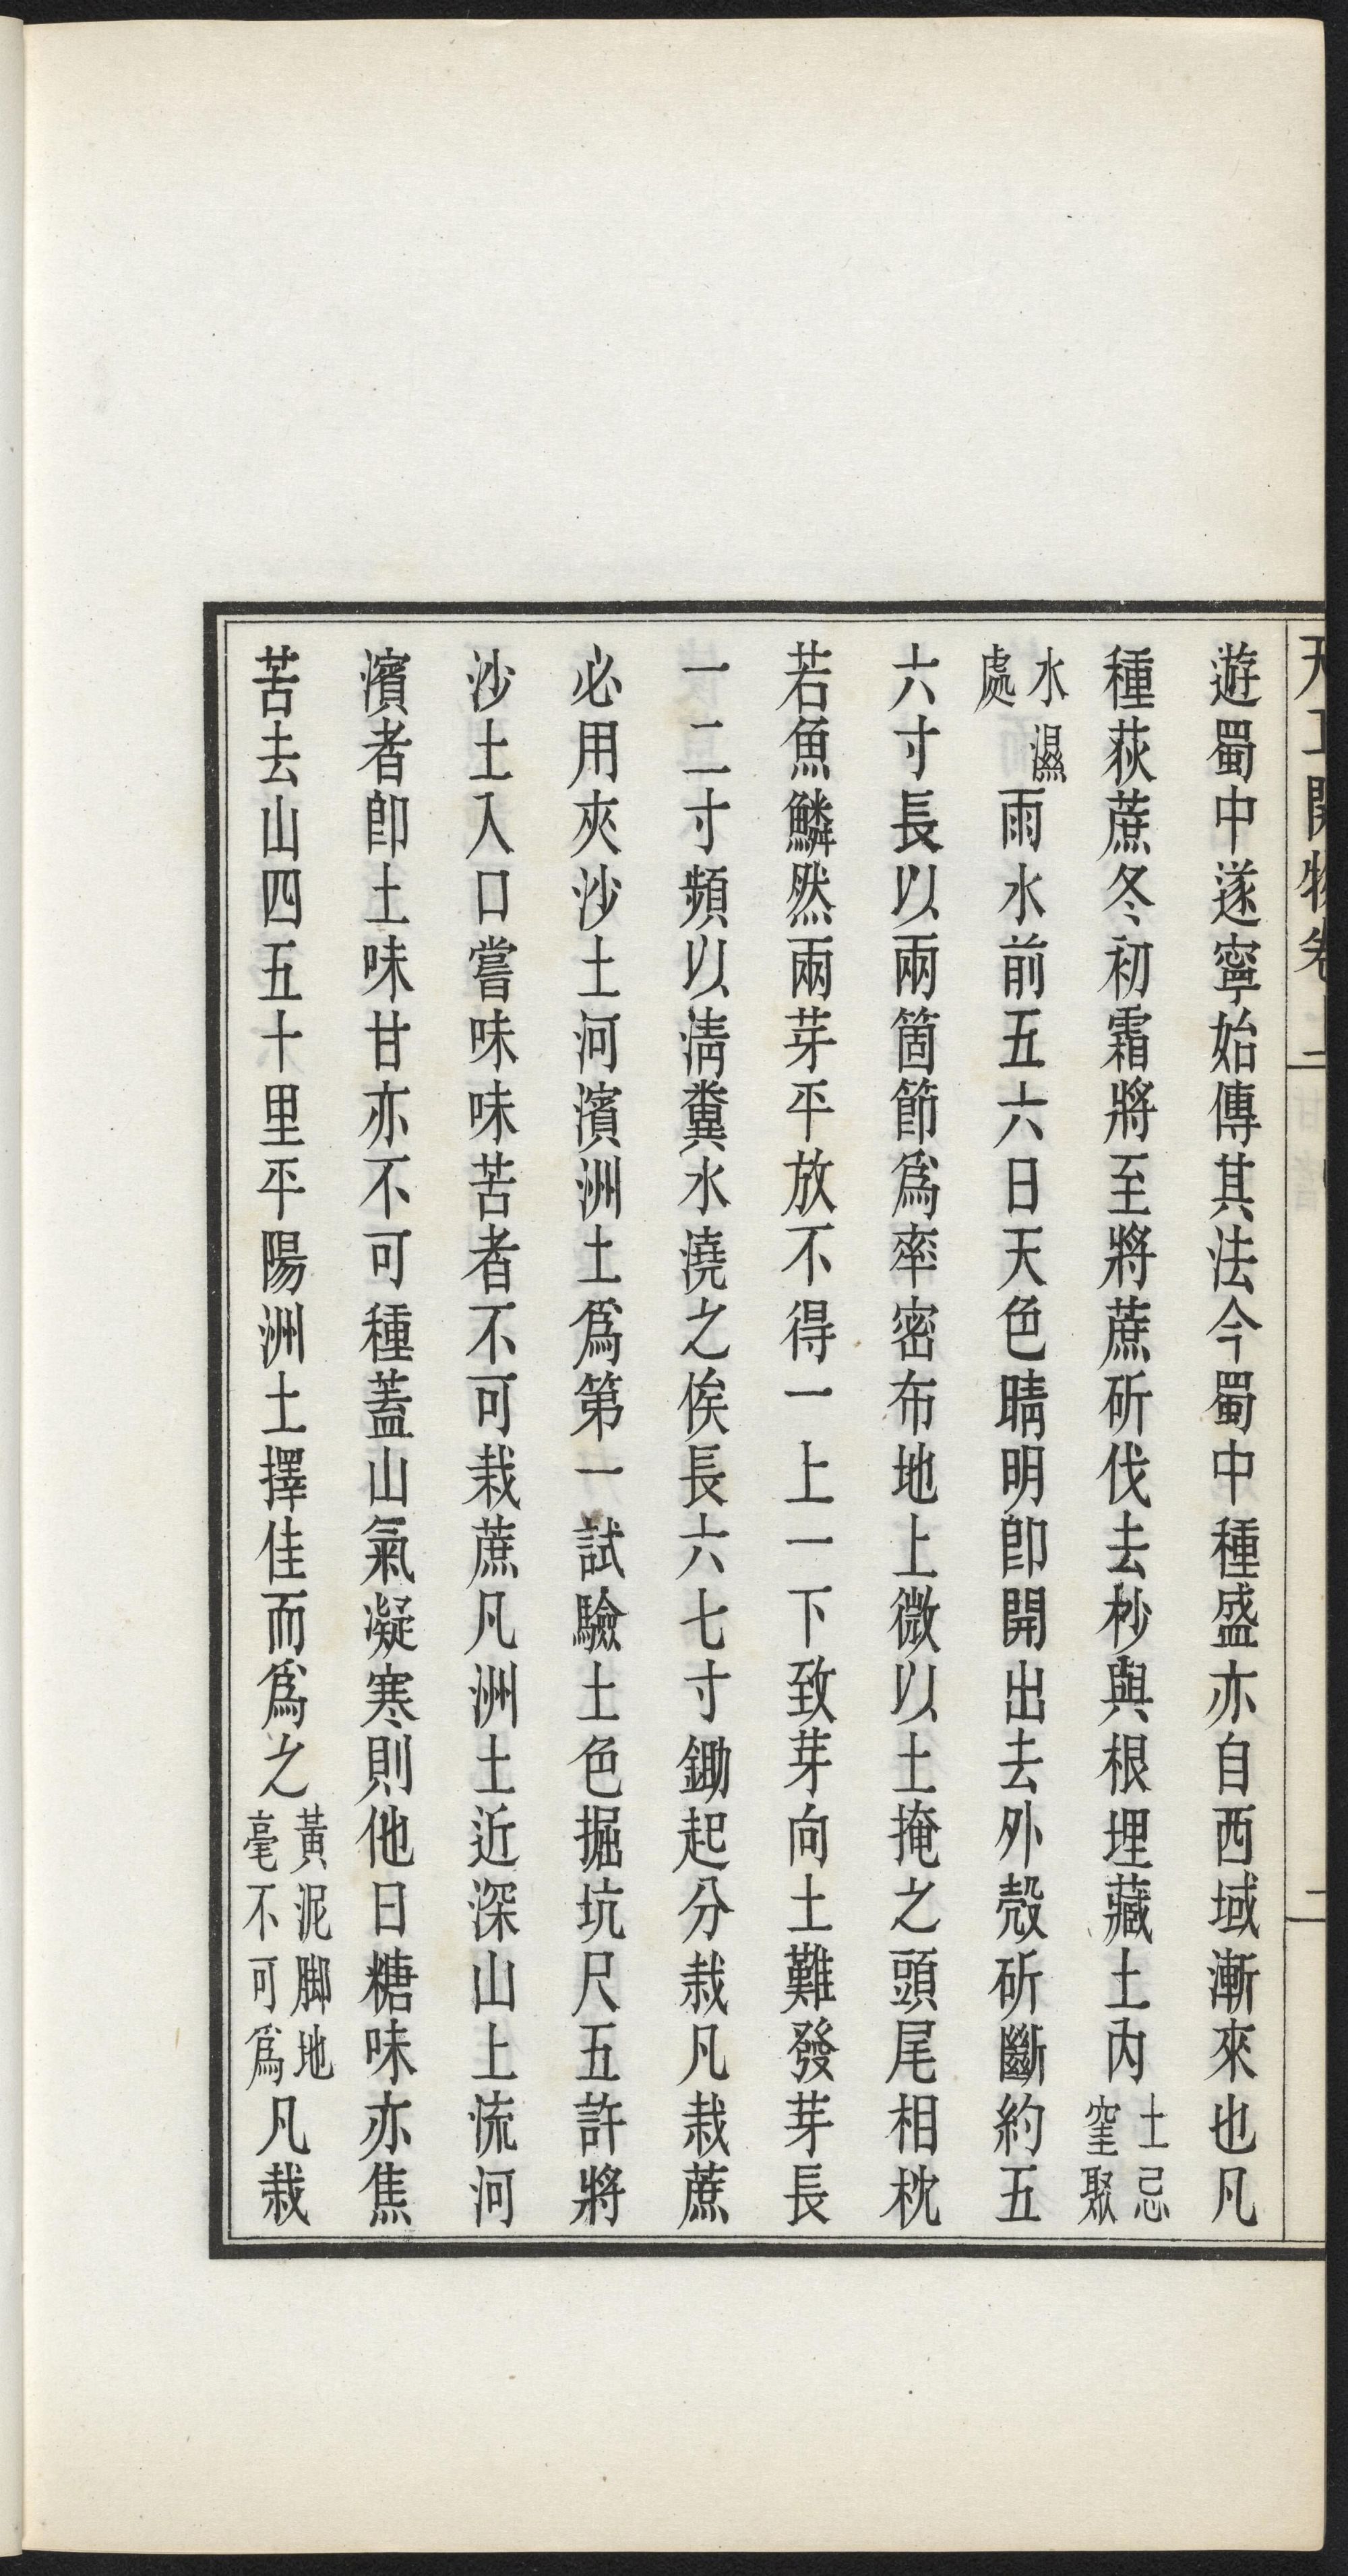 天工開物卷
二
二
遊蜀中遂寧始傳其法今蜀中種盛亦自西域漸來也凡
種荻蔗冬初霜將至將蔗斫伐去杪與根埋藏土內土忌窪聚
水濕處雨水前五六日天色晴明卽開出去外殼斫斷約五
六寸長以兩箇節爲率密布地上微以土掩之頭尾相枕
若魚鱗然兩芽平放不得一上一下致芽向土難發芽長
一二寸頻以淸糞水澆之俟長六七寸鋤起分栽凡栽蔗
必用夾沙土河濱洲土爲第一試驗土色掘坑尺五許將
沙土入口嘗味味苦者不可栽蔗凡洲土近深山上流河
濱者卽土味甘亦不可種蓋山氣凝寒則他日糖味亦焦
苦去山四五十里平陽洲土擇佳而爲之黃泥脚地毫不可爲凡栽